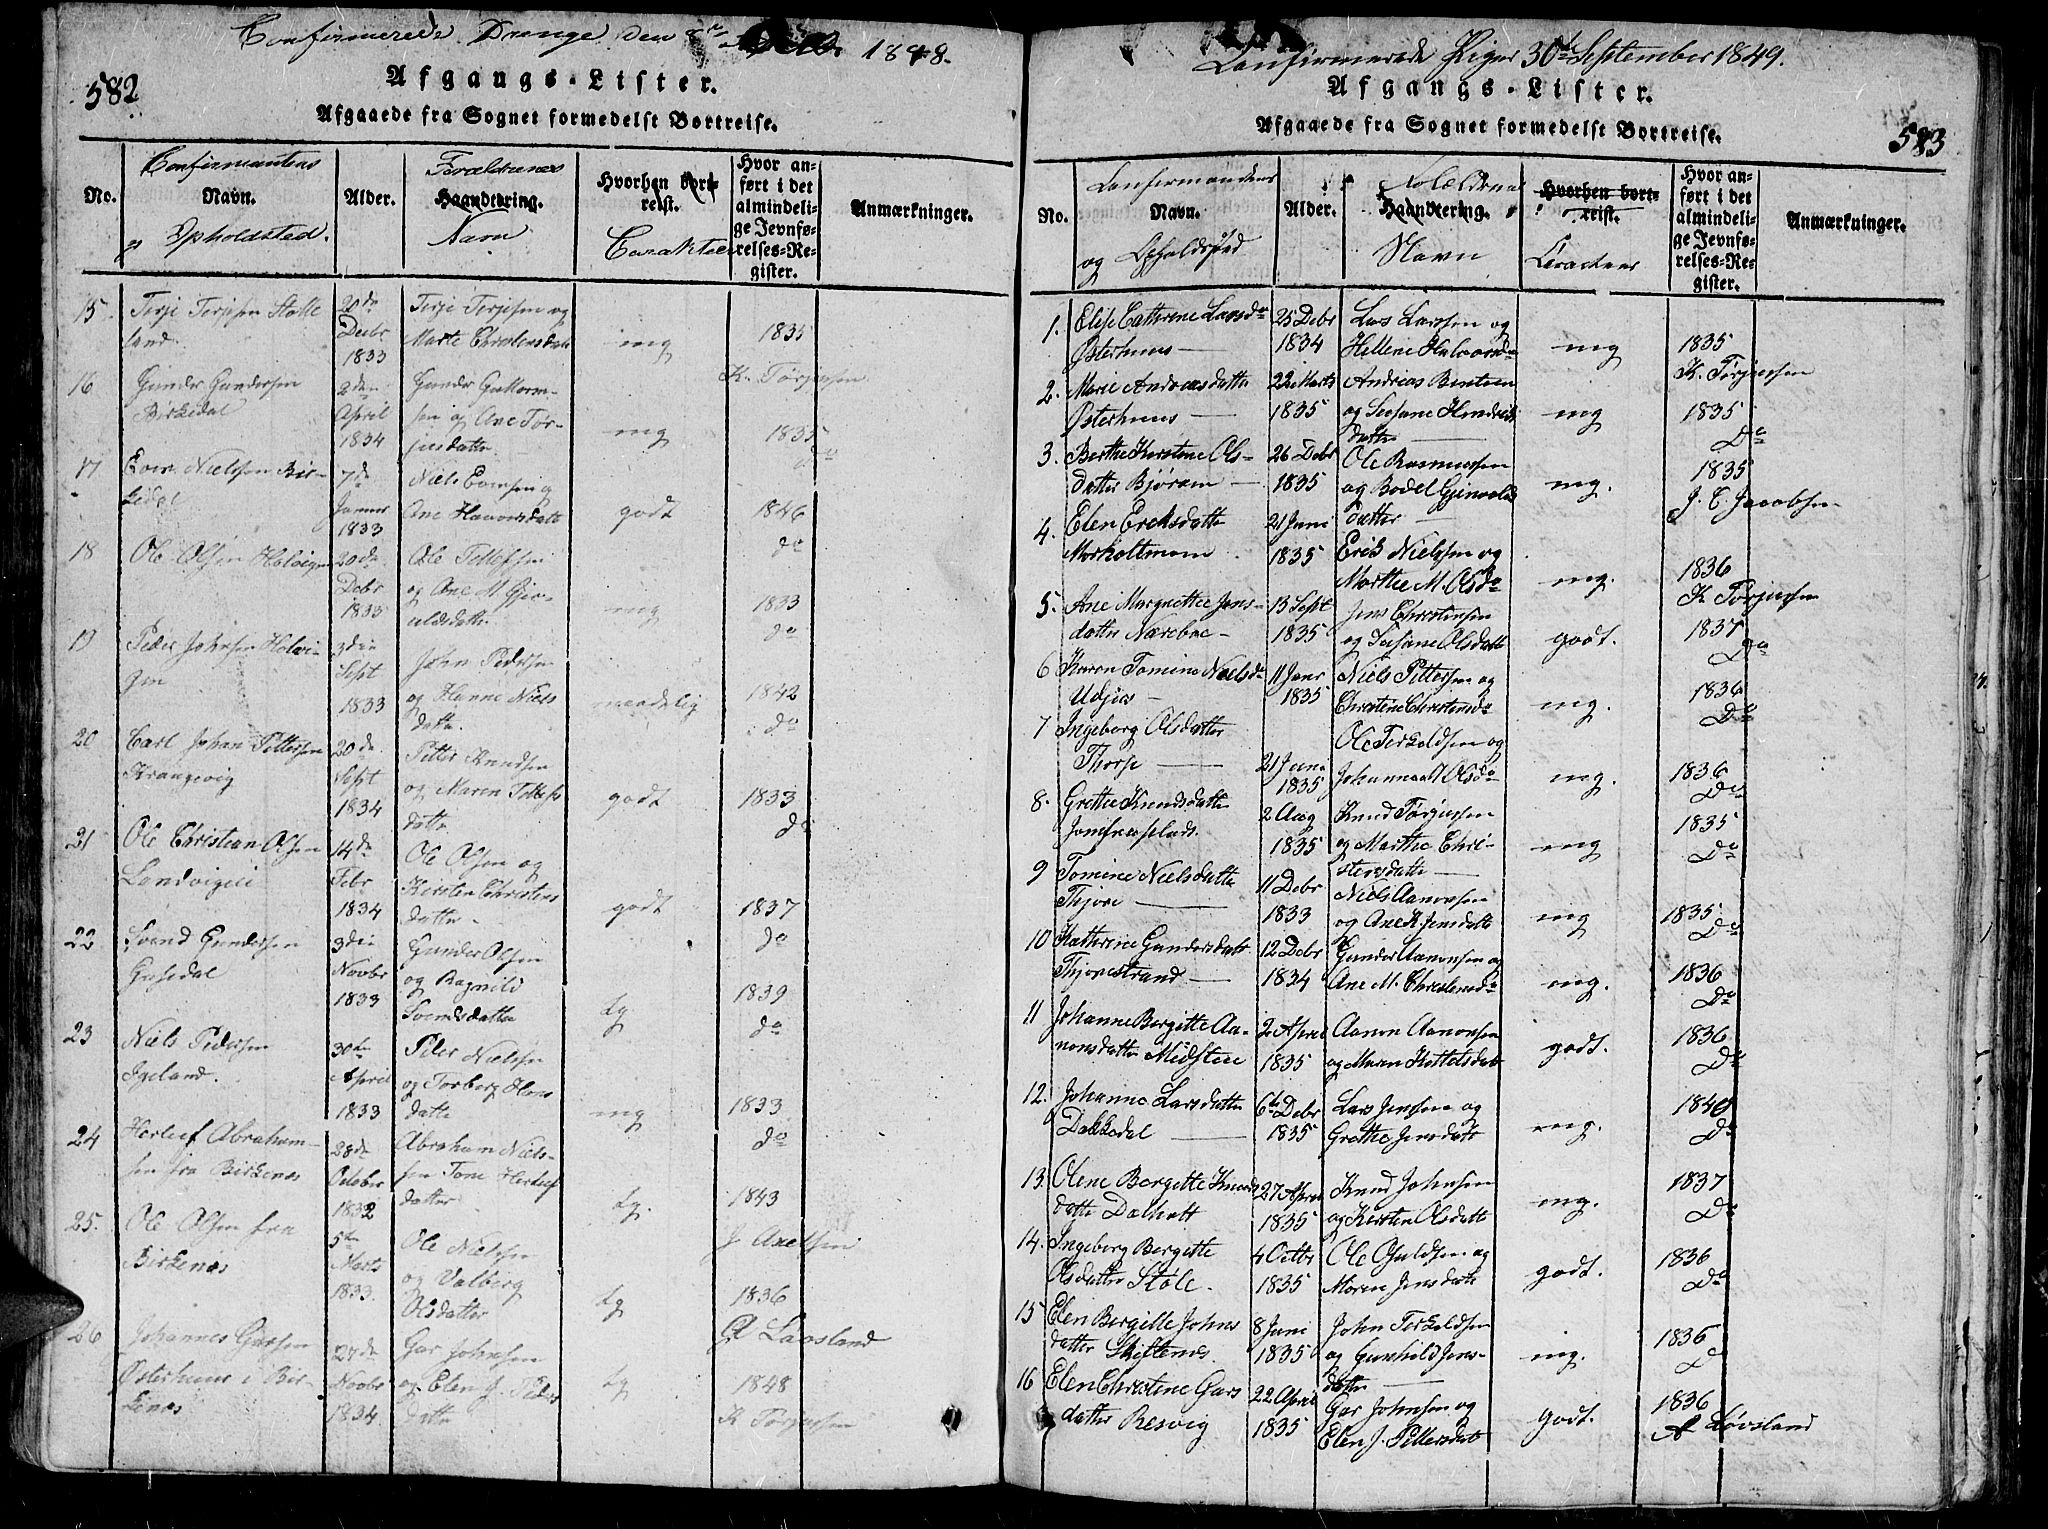 Confirmerede Drenge den 8de 1848.
582
Afgangs-Lister.
Afgaaede fra Sognet formedelst Bortreise.
No.
Confirmantens
Navn.
og Opholdsted.
Alder.
Forældrenes
Haandtering.
Navn
Hvorhen bort-
reist.
Carakter
Hvor an-
ført i det
almindeli-
ge Jevnfø-
relses-Re-
gister.
Anmærkninger.
15. Terje Terjesen Stølle
land.
20de
Decbr
1833
Terje Terjesen og
Marte Christensdatt
mg
1835
K. Tørjesen
16 Gunder Gundersen
Birkedal
2den
April
1834
Gunder Guttorm-
sen og Ane Tør-
jesdatter
mg
1835
do
17 Even Nielsen Bir-
kedal
7de
Januar
1833
Niels Evensen og
Ane Havorsdatt
godt
1846
do
18 Ole Olsen Holvigen
20de
Debr
1833
Ole Tellefsen
og Ane M Gjer-
uldsdatter
mg
1833
do
19 Peder Johnsen Holvi-
gen
3die
Sept
1833
John Pedersen
og Hanne Niels
datter
maadelig
1842
do
20 Carl Johan Pettersen
Krangevig
20de
Sept
1834
Petter Knudsen
og Maren Tellefs
datter
godt
1833
do
21 Ole Christian Olsen
Landvigeie
14de
Febr
1834
Ole Olsen og
Kirsten Christens
datter
godt
1837
do
22 Svend Gundersen
Gusedal
3die
Novbr
1833
Gunder Olsen
og Ragnild
Svendsdatter
tg
1839
do
23 Niels Pedersen
Igeland.
30te
April
1833
Peder Nielsen
og Torberg Hans
datter
mg
1833
do
24 Herlief Abraham-
sen fra Birkenæs
28de
October
1832
Abraham Niels-
sen Tone Herlief
datter
tg.
1843
J Axelsen
25. Ole Olsen fra
Birkenæs
5te
Marts
1833.
Ole Nielsen
og Valberg
Olsdatter
tg
1836
A Løvsland
26 Johannes Garsen
Østerhuus i Bir-
kenæs
27de
Novbr
1834.
Gar Johnsen
og Elen J. Peders
datter
tg
1848
K Tørjesen
Confirmerede Piger 30te September 1849.
Afgangs-Lister.
583
Afgaaede fra Sognet formedelst Bortreise.
No.
Confirmandens
Navn.
og Opholdsted
Alder.
Forældrenes
Haandtering.
Navn
Hvorhen bort-
reist.
Caracteer
Hvor an-
ført i det
almindeli-
ge Jevnfø-
relses-Re-
gister.
Anmærkninger.
1. Elise Cathrine Larsda
Østerhuus
25 Debr
1834
Lars Larssen og
Hellene Halvorsda
mg
1835
K. Tørjesen
2. Marie Andreasdatter
Østerhuus
22 Marts
1835
Andreas Bentsen
og Susane Hendriks
datter
mg
1835
Do
3. Berthe Kirstine Ols-
datter Bjøraen
26 Debr
1835
Ole Rasmussen
og Bodel Gjeruolds
datter
mg.
1835
J. C. Jacobsen
4. Elen Eriksdatter
Morholtmoen
21 Juni
1835
Erik Nielsen og
Marthe M. Olsda
mg.
1836
K Tørjesen
5. Ane Margrethe Jens-
datter Næreboe
13 Sept
1835
Jens Christensen
og Susane Olsdatt
godt.
1837
Do
6 Karen Tomine Nielsda
Udjus
11 Janr
1835
Niels Pettersen og
Christine Christensda
mg.
1836
Do
7 Ingeborg Olsdatter
Thorp
21 Juni
1835
Ole Terkeldsen og
Johanna M Olsda
mg.
1836
Do
8. Grethe Knudsdatter
Jomfrueplads.
2 Aug
1835
Knud Tørjesen
og Marthe Chri-
stensdatter
mg
1835
Do
9 Tomine Nielsdatter
Thjøre
11 Debr
1833
Niels Aanonsen
og Ane K Jensdatt
mg
1835
Do
10 Katherine Gundersdatt
Thjorestrand
12 Debr
1834
Gunder Aanonsen og
Ane M. Christensda
mg.
1836
Do
11 Johanne Bergitte Aa-
nonsdatter Midsteie
2 April
1835
Aanon Aanonsen
og Maren Kettelsdat
godt.
1836
Do
12. Johanne Larsdatter
Dokkedal
6te Debr
1835
Lars Jensen og
Grethe Jensdatt
mg.
1840
Do
13. Olene Bergette Knuds
datter Dalholt
27 April
1835
Knud Johnsen
og Kirsten Olsdatter
mg.
1837
Do
14. Ingeborg Bergette
Olsdatter Støle.
4 Octbr
1835
Ole Guldsen og
Maren Jensdatt
godt.
1836
Do
15 Elen Bergitte Johns
datter Skiftenes.
8 Juni
1835
John Terkeldsen
og Gunhild Jens-
datter
mg.
1836
D
16 Elen Christine Gars
datter Resvig
22 April
1835
Gar Johnsen og
Elen J. Pettersdat
godt.
1836
A Løvsland